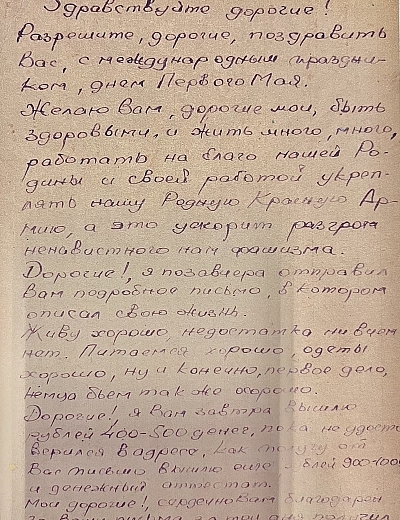 Здравствуйте дорогие!
Разрешите, дорогие, поздравить
Вас, с международным праздни-
ком, днем Первого Мая.
Желаю Вам, дорогие мои, быть
здоровыми, и жить много, много,
работать на благо нашей Ро-
дины и своей работой укреп-
лять нашу Родную Красную Ар-
мию, а это ускорит разгром
ненавистного нам фашизма.
Дорогие!, я позавчера отправил
Вам подробное письмо, в котором
описал свою жизнь.
Живу хорошо недостатка ни в чем
нет. Питаемся хорошо, одеты
хорошо, ну и конечно, первое дело,
немца бьем так же хорошо.
Дорогие!, я Вам завтра вышлю
рублей 400-500 денег, пока не удосто
верился в адресе, как получу от
Вас письмо вышлю еще рублей 900-100
и денежный аттестат.
Мои дорогие!, сердечно Вам благодарен
за Ваши письма за мои дня получил